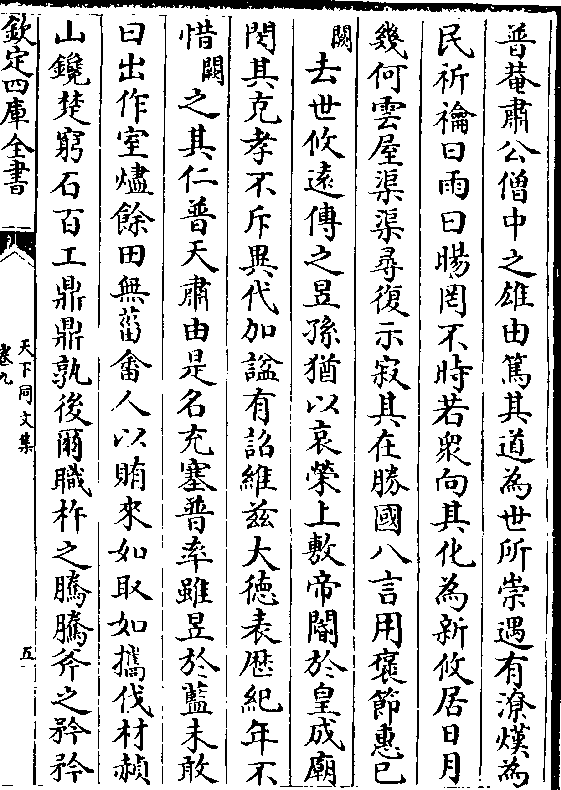 普菴肅公僧中之雄由篤其道為世所崇遇有潦熯為
民祈禬曰雨曰暘罔不時若衆向其化為新攸居日月
幾何雲屋渠渠尋復示寂其在勝國八言用褒節惠已
闕去世攸遠傳之昱孫猶以哀榮上敷帝閽於皇成廟
閔其克孝不斥異代加諡有詔維兹大德表歴紀年不
惜闕之其仁普天肅由是名充塞普率雖昱於藍未敢
曰出作室燼餘田無菑畬人以賄來如取如攜伐材赬
山鑱楚窮石百工鼎鼎孰後爾職杵之騰騰斧之矜矜
欽定四庫全書
天下同文集
卷九
五